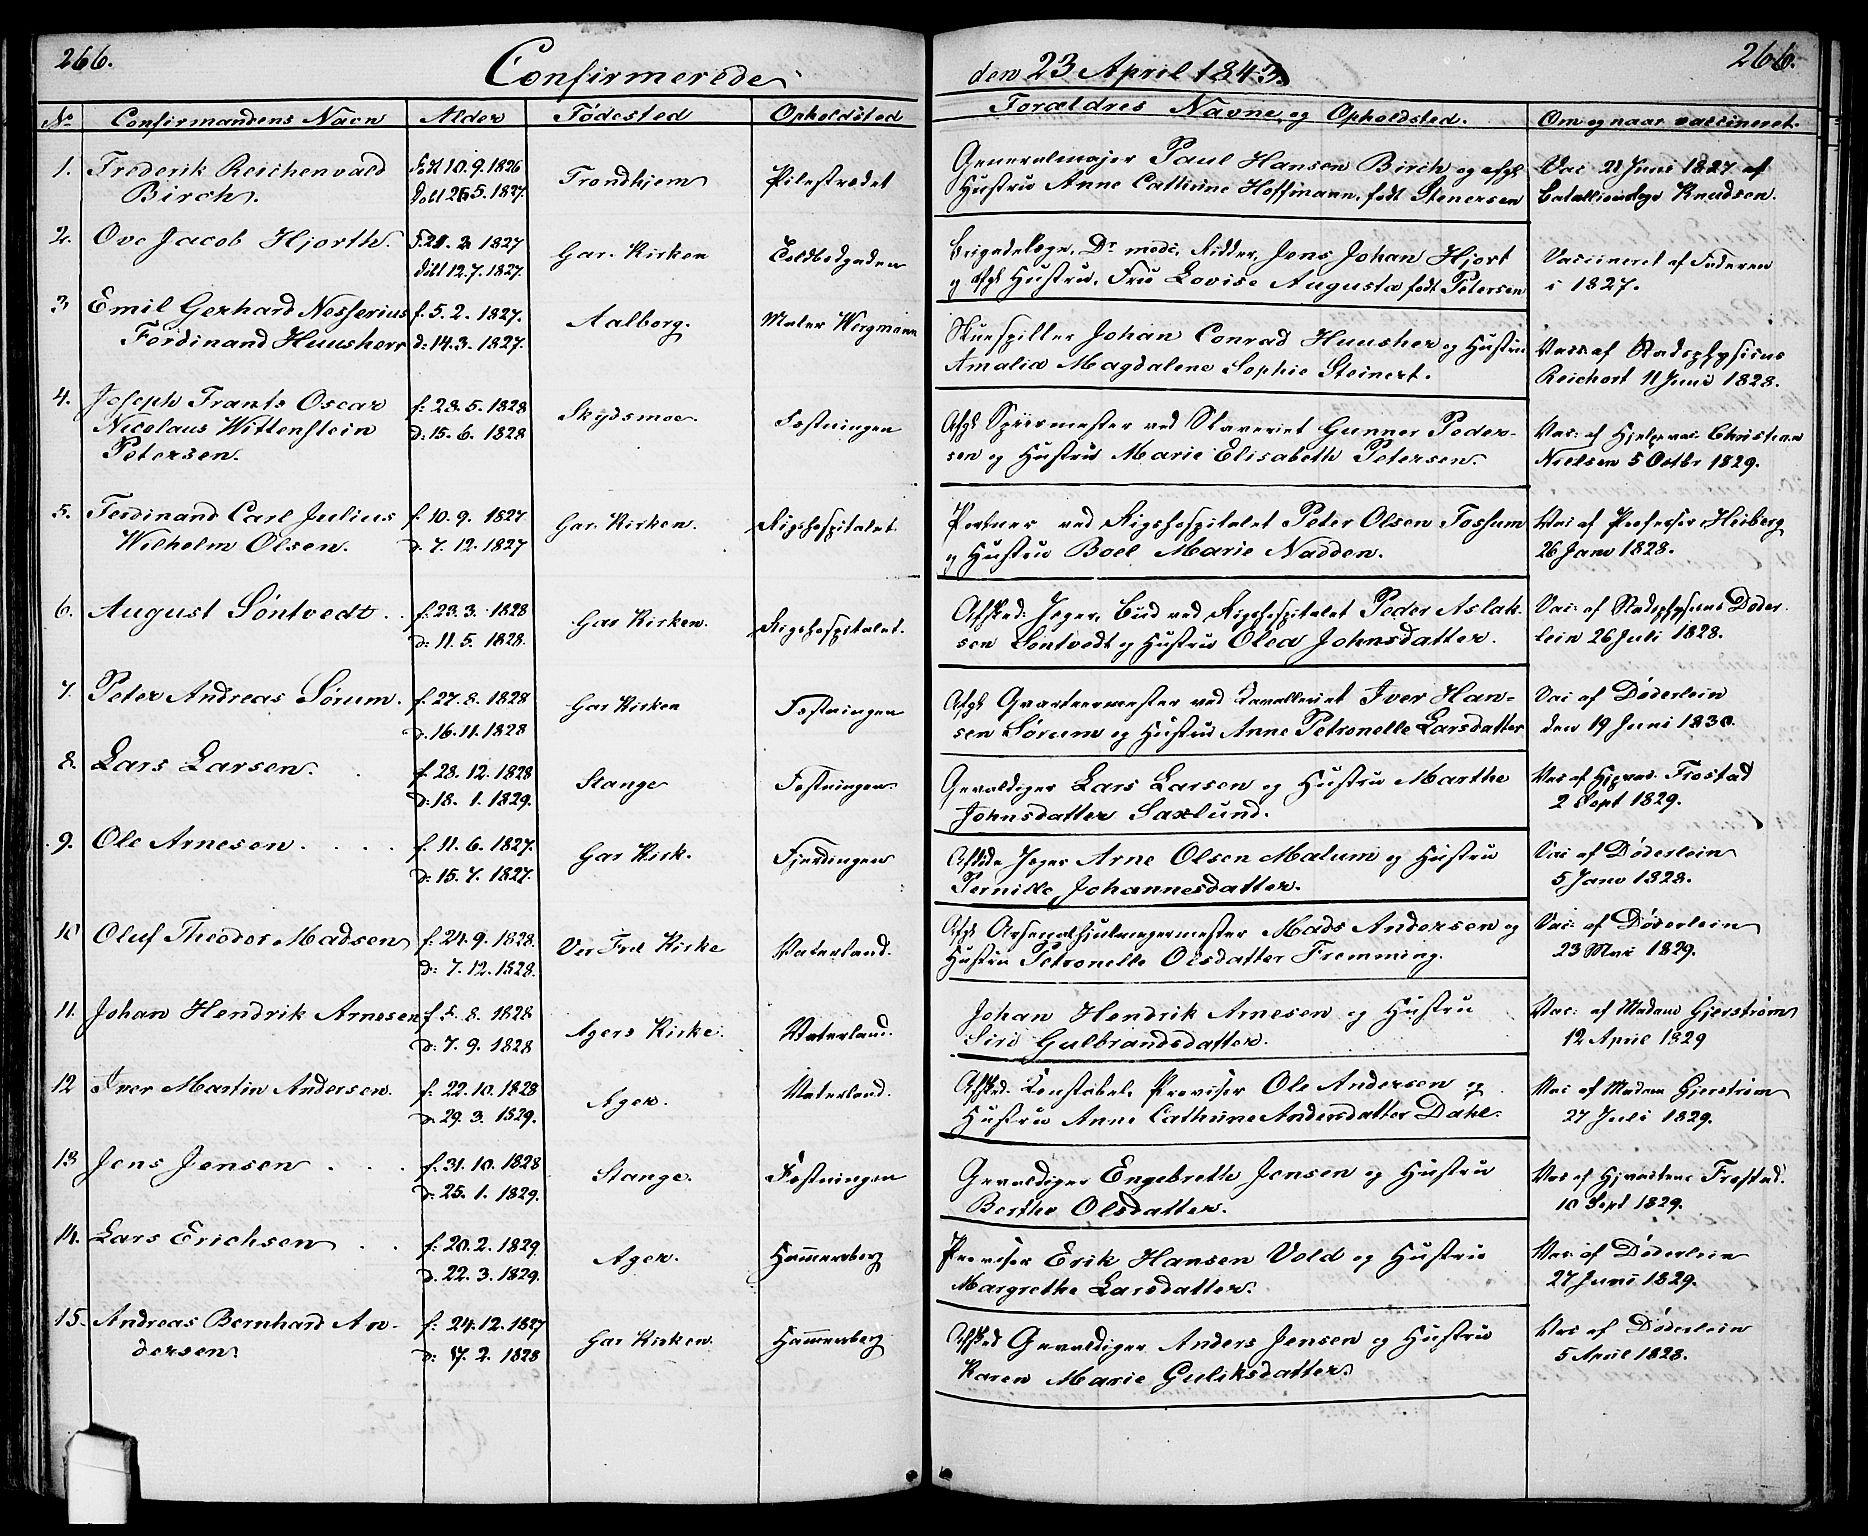 266.
Confirmerede
den 23 April 1843.
266.
No Confirmandens Navn Alder Fødested Opholdsted Forældres Navne og Opholdsted. Om og naar vaccineret.
1. Frederik Reichenvald Født 10.9.1826 Trondhjem Pilestrædet Generalmajor Paul Hansen Birch og afgl Vac 21 Juni 1827 af
Birch. Døbt 26.5.1827. Hustru Anne Cathrine Hoffmann, født Stenersen Knudsen.
2. Ove Jacob Hjorth. F. 21. 2. 1827 Gar. Kirken Toldbodgaden Brigadelæge, Dr. medc, Ridder, Jens Johan Hjort Vaccineret af Faderen
døbt 12.7.1827. og Afgl Hustru, Fru Lovise Augusta født Petersen i 1827.
3 Emil Gerhard Nesserius f. 5. 2. 1827. Aalborg. Maler Wergmann Skuespiller Johan Conrad Huusher og Hustru Vacc. af Stadsphysicus
Ferdinand Huusherr d: 14.3. 1827. Amalia Magdalene Sophie Steinert. Reichort 11 Juni 1828.
4. Joseph Frants Oscar f: 28. 5. 1828 Skydsmoe Fæstningen Afgl ved Slaveriet Gunner Peder- Vac: af Hjelpevac. Christian
Nicolaus Wittenstein d: 15. 6. 1828 sen og Hustru Marie Elisabeth Petersen. Nielsen 5 Octbr 1829.
Petersen.
5. Ferdinand Carl Julius f. 10. 9. 1827 Gar. Kirken. Rigshospitalet Portner ved Rigshospitalet Peter Olsen Fossum Vac af Professor Heiberg
Wilhelm Olsen. d: 7. 12. 1827 og Hustru Boel Marie Nadden. 26 Janv 1828.
6. August Söntvedt. f: 23. 3. 1828 Gar Kirken. Rigshospitalet. Afsked: Jeger, Bud ved Rigshospitalet Peder Aslak- Vac: af Stadsphysicus Døder-
d: 11. 5. 1828. sen Söntvedt og Hustru Olea Johnsdatter. lein 26 Juli 1828.
7. Peter Andreas Sørum. f: 27. 8. 1828 Gar Kirken Fæstningen Afgl Qvarteermester ved Cavalleriet Iver Han- Vac af Døderlein
d. 16.11.1828 sen Sørum og Hustru Anne Petronelle Larsdatter den 19 Juni 1830.
8. Lars Larsen. f. 28. 12. 1828 Stange Fæstningen Gevaldiger Lars Larsen og Hustru Marthe Vac af Hjevac. Frostad
d: 18. 1. 1829. Johnsdatter Saxlund. 2 Sept 1829.
9. Ole Arnesen. f. 11. 6. 1827. Gar Kirk. Fjerdingen Afskede Jeger Arne Olsen Malum og Hustru Vac af Døderlein
d: 15. 7. 1827. Pernille Johannesdatter. 5 Janv 1828.
10 Oluf Theodor Madsen f: 24. 9. 1828. Vor Frel Kirke Vaterland. Afgl Arsenalhjulmagermester Mads Andersen og Vac: af Døderlein
d: 7. 12. 1828. Hustru Petronelle Olsdatter Fremming. 23 Mai 1829.
11. Johan Hendrik Arnesen f. 5. 8. 1828 Agers Kirke. Vaterland. Johan Hendrik Arnesen og Hustru Vac: af Madam Gjerstrøm
d: 7. 9. 1828 Siri Gulbrandsdatter. 12 April 1829
12 Iver Martin Andersen. f. 22.10. 1828 Ager. Vaterland. Afsked: Constabel, Provisor Ole Andersen og Vac af Madam Gjerstrøm
d. 29. 3. 1829. Hustru Anne Cathrine Andersdatter Dahl. 27 Juli 1829.
13 Jens Jensen f: 31. 10. 1828 Stange. Fæstningen Gevaldiger Engebreth Jensen og Hustru Vac af Frostad.
d: 25. 1. 1829. Berthe Olsdatter. 10 Sept 1829.
14. Lars Erichsen f: 20. 2. 1829. Ager. Hammersborg Provisor Erik Hansen Vold og Hustru Vac: af Døderlein
d. 22. 3. 1829. Margrethe Larsdatter. 27 Juni 1829.
15. Andreas Bernhard An- f: 24.12. 1827 Gar Kirken. Hammersborg Afsked Gevaldiger Anders Jensen og Hustru Vac af Døderlein
dersen. d: 17. 2. 1828 Karen Marie Guliksdatter. 5 April 1828.